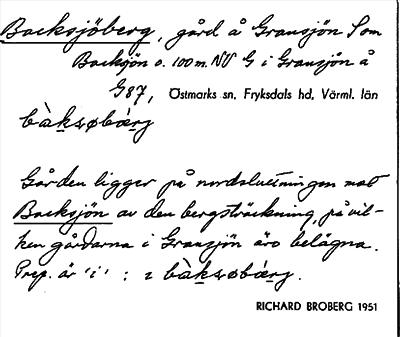 Backsjöberg, gård å Gransjön S om
Backsjön o. 100 m. NV G i Gransjön å
G87, Östmarks sn, Fryksdals hd, Värml. län
bàksøbærg
Gården ligger på nordsluttningen mot
Backsjön av den bergsträckning, på vil-
ken gårdarna i Gransjön äro belägna.
Prep. är 'i' : ɪ bàksøbærg.
RICHARD BROBERG 1951